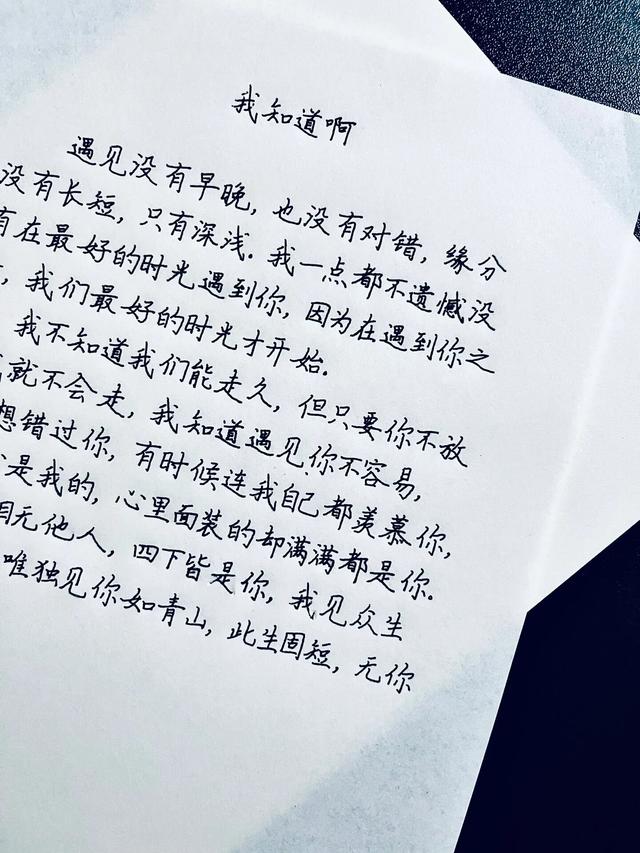 我知道啊
遇见没有早晚，也没有对错，缘分
没有长短，只有深浅．我一点都不遗憾没
有在最好的时光遇到你，因为在遇到你之
，我们最好的时光才开始．
我不知道我们能走久，但只要你不放
就不会走，我知道遇见你不容易，
想错过你，有时候连我自己都羡慕你，
是我的，心里面装的却满满都是你．
相无他人，四下皆是你，我见众生
唯独见你如青山，此生固短，无你